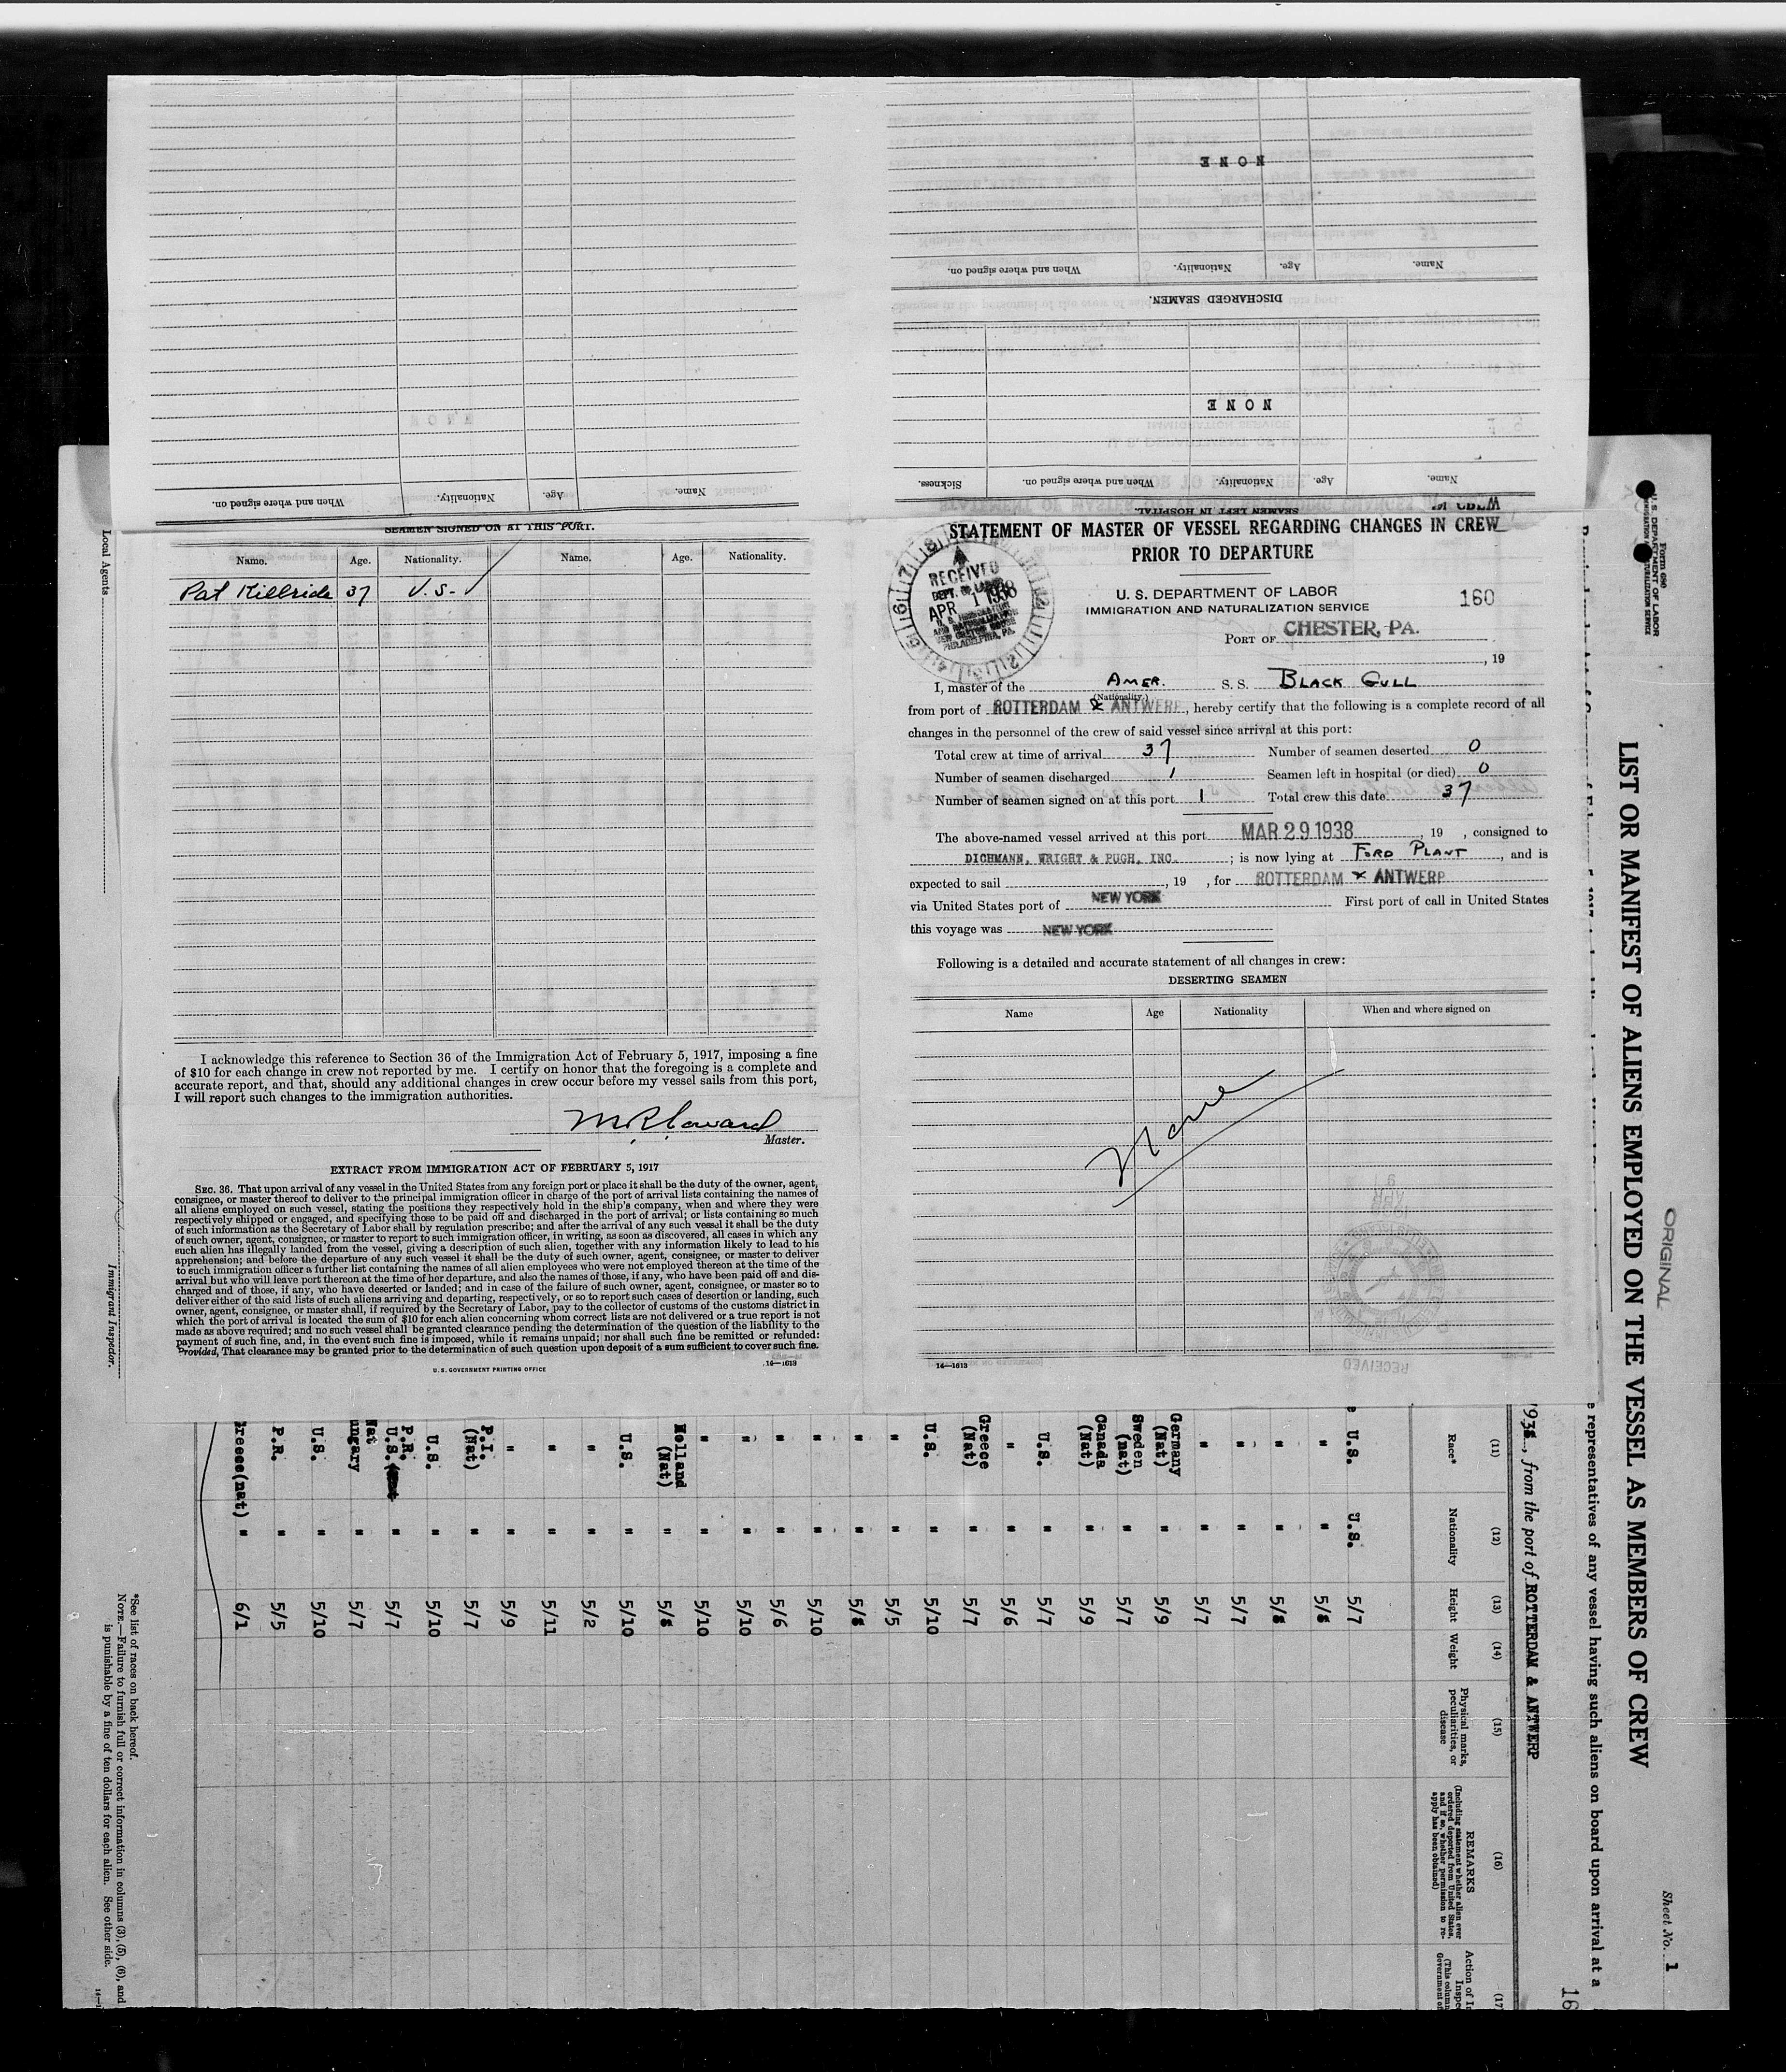 NONE
Name. Age. Nationality. When and where signed on.
DISCHARGED SEAMEN.
NONE
Name. Age. Nationality. When and where signed on. Sickness.
SEAMEN LEFT IN HOSPITAL.
Name. Age. Nationality. When and where signed on.
SEAMEN SIGNED ON AT THIS PORT.
Name. Age. Nationality. Name. Age. Nationality.
Pat Killride 37 U.S.
I acknowledge this reference to Section 36 of the Immigration Act of February 5, 1917, imposing a fine
of $10 for each change in crew not reported by me. I certify on honor that the foregoing is a complete and
accurate report, and that, should any additional changes in crew occur before my vessel sails from this port,
I will report such changes to the immigration authorities.
Master.
EXTRACT FROM IMMIGRATION ACT OF FEBRUARY 5, 1917
SEC. 36. That upon arrival of any vessel in the United States from any foreign port or place it shall be the duty of the owner, agent,
consignee, or master thereof to deliver to the principal immigration officer in charge of the port of arrival lists containing the names of
all aliens employed on such vessel, stating the positions they respectively hold in the ship's company, when and where they were
respectively shipped or engaged, and specifying those to be paid off and discharged in the port of arrival; or lists containing so much
of such information as the Secretary of Labor shall by regulation prescribe; and after the arrival of any such vessel it shall be the duty
of such owner, agent, consignee, or master to report to such immigration officer, in writing, as soon as discovered, all cases in which any
such alien has illegally landed from the vessel, giving a description of such alien, together with any information likely to lead to his
apprehension; and before the departure of any such vessel it shall be the duty of such owner, agent, consignee, or master to deliver
to such immigration officer a further list containing the names of all alien employees who were not employed thereon at the time of the
arrival but who will leave port thereon at the time of her departure, and also the names of those, if any, who have been paid off and dis-
charged and of those, if any, who have deserted or landed; and in case of the failure of such owner, agent, consignee, or master so to
deliver either of the said lists of such aliens arriving and departing, respectively, or so to report such cases of desertion or landing, such
owner, agent, consignee, or master shall, if required by the Secretary of Labor, pay to the collector of customs of the customs district in
which the port of arrival is located the sum of $10 for each alien concerning whom correct lists are not delivered or a true report is not
made as above required; and no such vessel shall be granted clearance pending the determination of the question of the liability to the
payment of such fine, and, in the event such fine is imposed, while it remains unpaid; nor shall such fine be remitted or refunded:
Provided, That clearance may be granted prior to the determination of such question upon deposit of a sum sufficient to cover such fine.
U. S. GOVERNMENT PRINTING OFFICE 16—1613
STATEMENT OF MASTER OF VESSEL REGARDING CHANGES IN CREW
PRIOR TO DEPARTURE
RECEIVED
DEPT. OF LABOR
APR 1 1938
PHILADELPHIA, PA.
U. S. DEPARTMENT OF LABOR
IMMIGRATION AND NATURALIZATION SERVICE
160
PORT OF CHESTER, PA.
, 19
I, master of the AMER. S. S. BLACK GULL
(Nationality)
from port of ROTTERDAM & ANTWERP, hereby certify that the following is a complete record of all
changes in the personnel of the crew of said vessel since arrival at this port:
Total crew at time of arrival 37 Number of seamen deserted 0
Number of seamen discharged 1 Seamen left in hospital (or died) 0
Number of seamen signed on at this port 1 Total crew this date 37
The above-named vessel arrived at this port MAR 29 1938, 19 , consigned to
DICHMANN, WRIGHT & PUGH, INC. ; is now lying at FORD PLANT, and is
expected to sail , 19 , for ROTTERDAM & ANTWERP
via United States port of NEW YORK First port of call in United States
this voyage was NEW YORK
Following is a detailed and accurate statement of all changes in crew:
DESERTING SEAMEN
Name Age Nationality When and where signed on
None
16—1613
RECEIVED
Form 680
U. S. DEPARTMENT OF LABOR
IMMIGRATION AND NATURALIZATION SERVICE
ORIGINAL
Sheet No. 1
LIST OR MANIFEST OF ALIENS EMPLOYED ON THE VESSEL AS MEMBERS OF CREW
representatives of any vessel having such aliens on board upon arrival at a
, from the port of ROTTERDAM & ANTWERP
(11) (12) (13) (14) (15) (16)
Race* Nationality Height Weight Physical marks, peculiarities, or disease
REMARKS
(Including statement whether alien ever
ordered deported from United States,
and if so, whether permission to re-
apply has been obtained)
U.S. U.S. 5/7
" "
" "
" " 5/7
" " 5/7
Germany (Nat) " 5/9
Sweden (nat) " 5/7
Canada (Nat) " 5/9
U.S. " 5/7
" " 5/6
Greece (Nat) " 5/7
U.S. " 5/10
" " 5/5
" "
" " 5/10
" " 5/6
" " 5/10
" " 5/10
Holland (Nat) "
U.S. " 5/10
" " 5/2
" " 5/11
" " 5/9
P.I. (Nat) " 5/7
U.S. " 5/10
P.R. U.S. " 5/7
Nat " 5/7
U.S. " 5/10
P.R. " 5/5
Greece(nat) " 6/1
*See list of races on back hereof.
NOTE.—Failure to furnish full or correct information in columns (3), (5), (6), and
is punishable by a fine of ten dollars for each alien. See other side.
Local Agents
Immigrant Inspector.